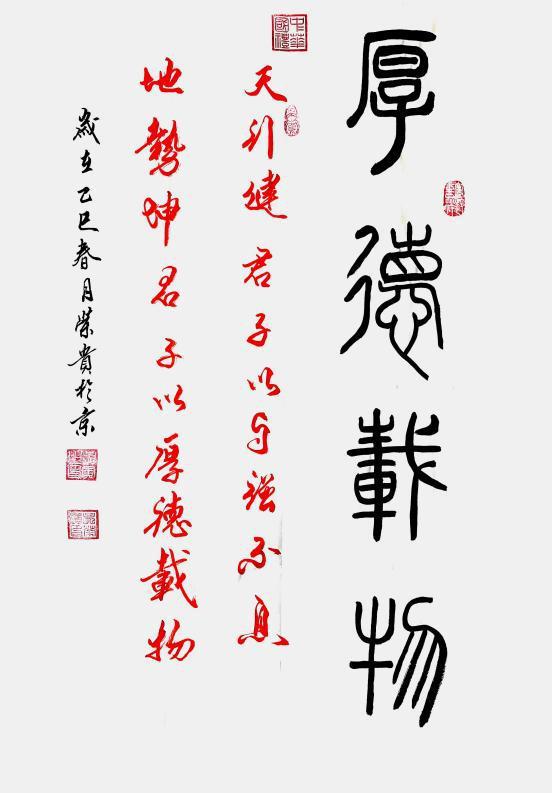 中華國禮
厚德載物
天行健君子以自强不息
地勢坤君子以厚德載物
歲在乙巳春月榮貴於京